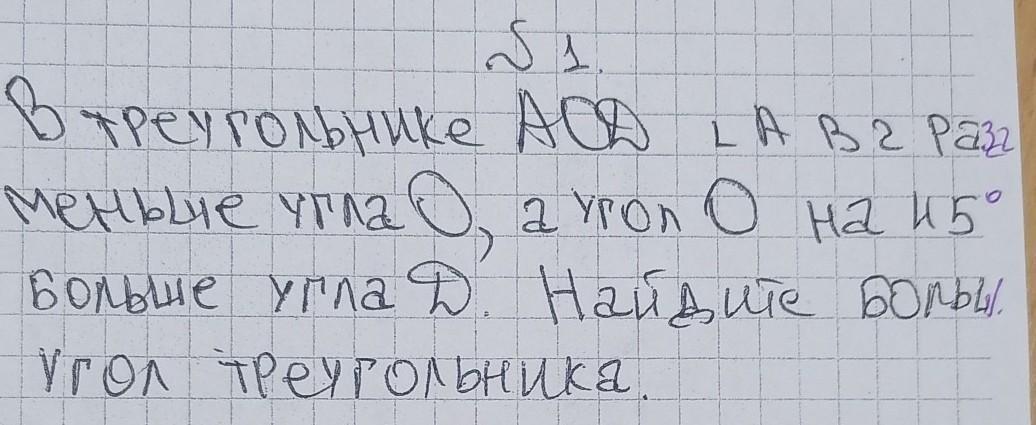 № 1.
В треугольнике АОД ∠А в 2 раза
меньше угла О, а угол О на 45°
больше угла Д. Найдите больш.
угол треугольника.